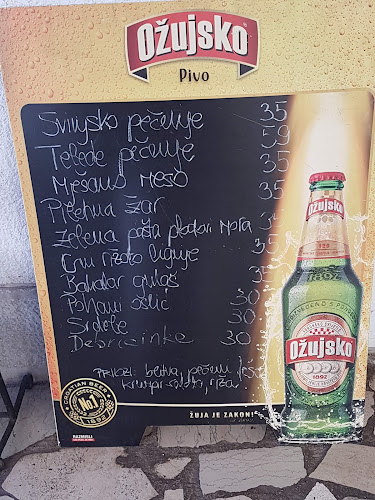 Ožujsko
Pivo
Svinjsko pečenje 35
Teleće pečenje 59
Miješano meso 35
Piletina žar 35
Zelena pašta plodovi mora
Crni rižoto lignje 35
Bakalar gulaš
Pohani oslić 30
Srdele 30
Debrecinke 30
PRILOZI: blitva, pečeni
krumpir salata, riža
CROATIAN BEER
No1
1892
ŽUJA JE ZAKON!
RAZMISLI
Ožujsko
Ožujsko
1892